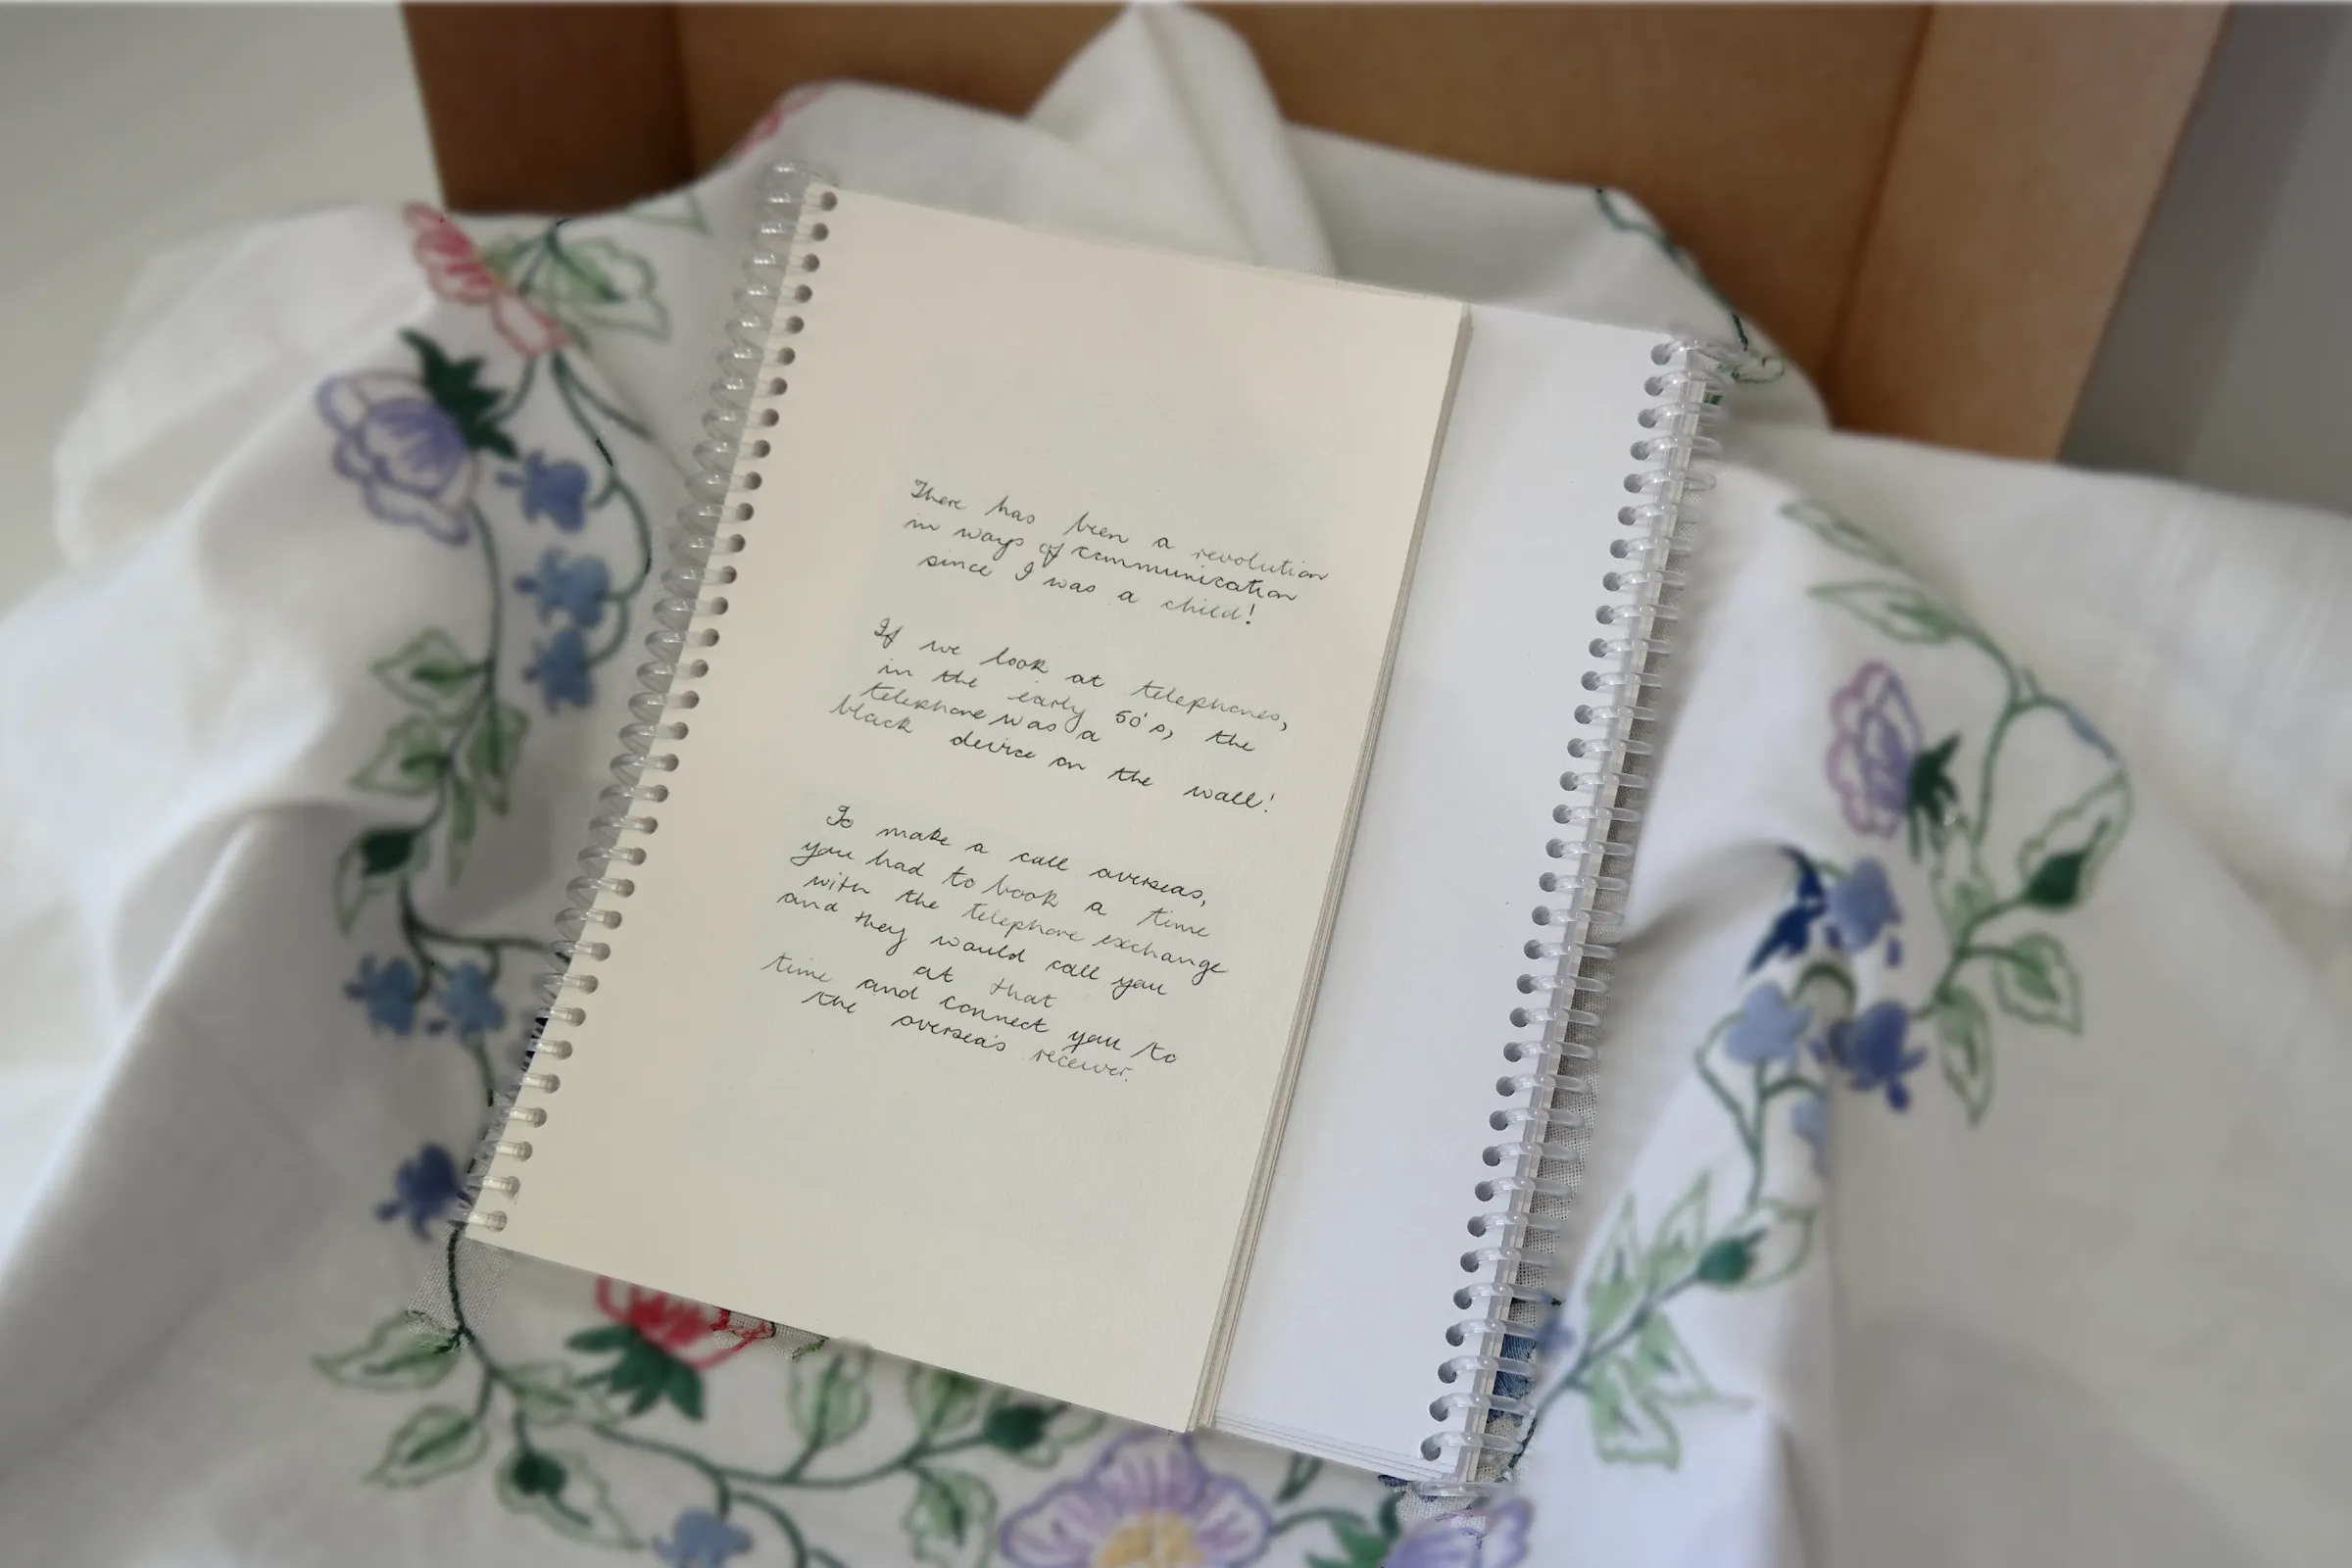 There has been a revolution
in ways of communication
since I was a child!
If we look at telephones,
in the early 50's, the
telephone was a
black device on the wall!
To make a call overseas,
you had to book a time
with the telephone exchange
and they would call you
at that
time and connect you to
the overseas receiver.